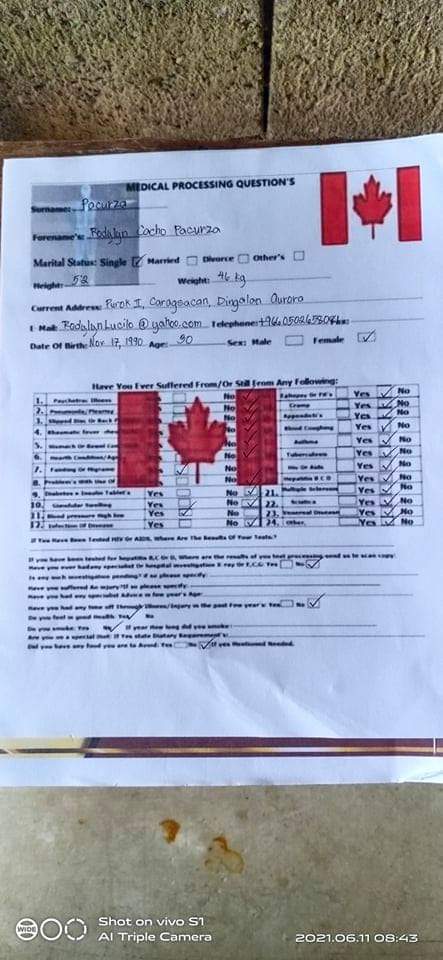 MEDICAL PROCESSING QUESTION'S
Surname: Pacurza
Forename's: Rodylyn Cacho Pacurza
Marital Status: Single Married Divorce Other's
Height: 5'2 Weight: 46 kg
Current Address: Purok I, Caragsacan, Dingalan Aurora
E-Mail: RodylynLucilo@yahoo.com Telephone:
Date Of Birth: Nov 17, 1990 Age: 30 Sex: Male Female
Have You Ever Suffered From/Or Still From Any Following:
1. Psychetric Illness No Epilepsy Or Fit's Yes No
2. Pneumonia/Pleurisy No Cramp Yes No
3. Slipped Disc Or Back No Appendicit's Yes No
4. Rheumatic fever No Blood Coughing Yes No
5. Stomach Or Bowel No Asthma Yes No
6. Hearth Condition No Tuberculosis Yes No
7. Fainting Or Migraine No Hiv Or Aids Yes No
8. Problem's With No Hepatitis B C D Yes No
9. Diabetes + Insulin Tablet's Yes No 21. Multiple Sclerosis Yes No
10. Glandular Swelling Yes No 22. Sciatica Yes No
11. Blood pressure High low Yes No 23. Venereal Disease Yes No
12. Infection Of Disease Yes No 24. Other. Yes No
If You Have Been Tested HIV Or AIDS, Where Are The Results Of Your Tests?
If you have been tested for hepatitis B,C Or D, Where are the results of you test processing send us to scan copy.
Have you ever had any specialist Or hospital investigation X ray Or E.C.G Yes No
Is any such investigation pending? if so please specify:
Have you suffered An injury?If so please specify:
Have you had any specialist Advice in few year's Age:
Have you had any time off Through Illness/Injury in the past Few year's: Yes No
Do you feel in good Health: Yes No
Do you smoke: Yes No If year How long did you smoke:
Are you on a special Diet: If Yes state Diatary Requirement's:
Did you have any food you are to Avoid: Yes No If yes Mentioned Needed.
WIDE
Shot on vivo S1
AI Triple Camera
2021.06.11 08:43